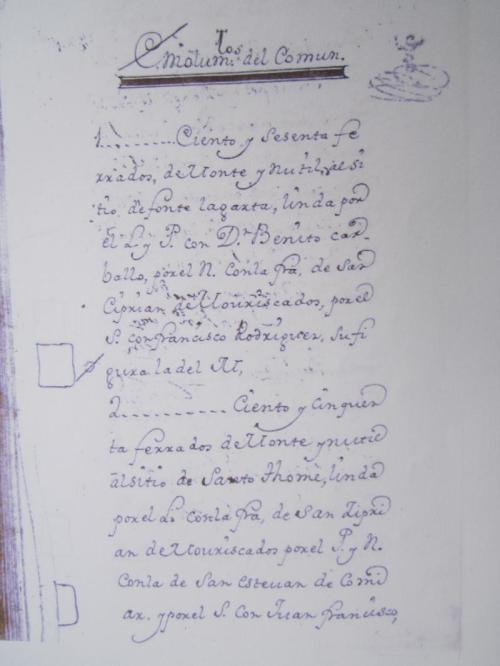 Emolum.tos del Comun.
1........... Ciento, y Sesenta fe
rrados, de Monte y Nutil, al si
tio, de fonte lagarta, linda por
el L. y P. con D.n Benito car-
ballo, por el N. Con la fra, de San
Ciprian de Mouriscados, por el
S. con francisco Rodriguez, su fi
gura la del M,
2........... Ciento y Cinquen
ta ferrados de Monte y nutil
al sitio de Santo thomè, linda
por el L. Con la fra, de San Zipri
an de Mouriscados por el P. y N.
Con la de San Estevan de Comi
ar. y por el S. Con Juan francisco,